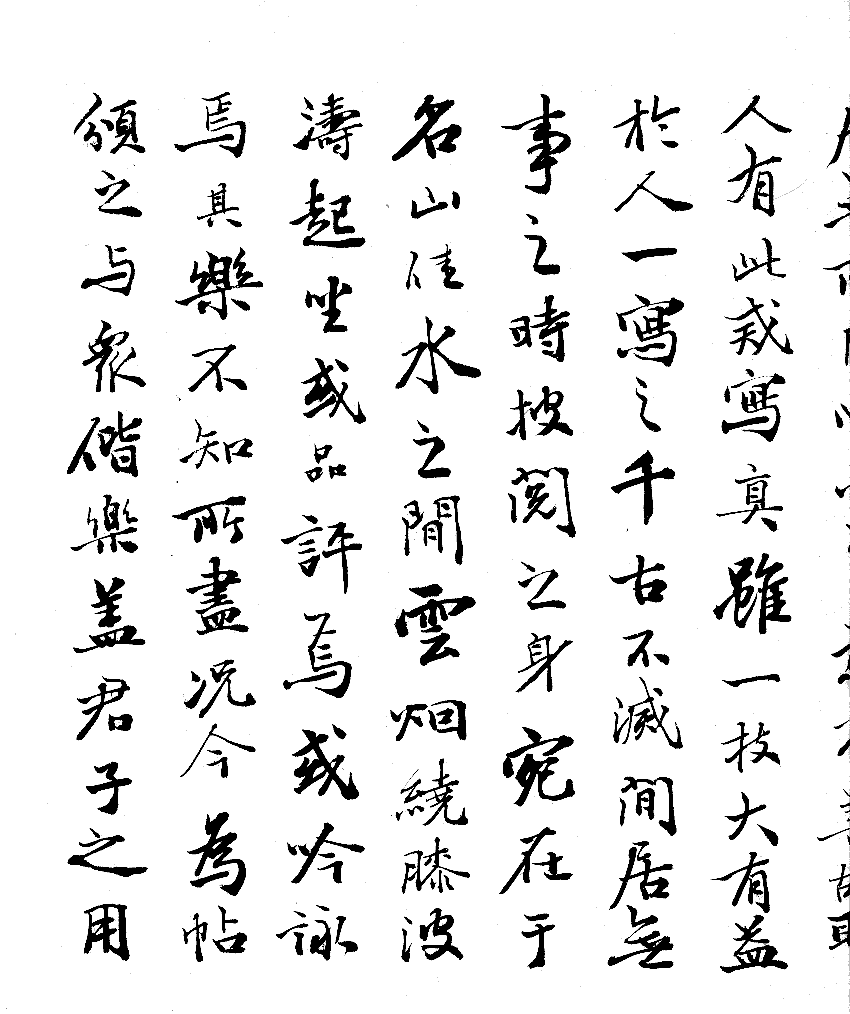 人有此哉寫真雖一枝大有益
於人一寫之千古不滅閒居無
事之時披閱之身宛在于
名山佳水之間雲烟繞膝波
濤起坐或品評焉或吟詠
焉其樂不知所盡况今為帖
頒之与衆偕樂盖君子之用